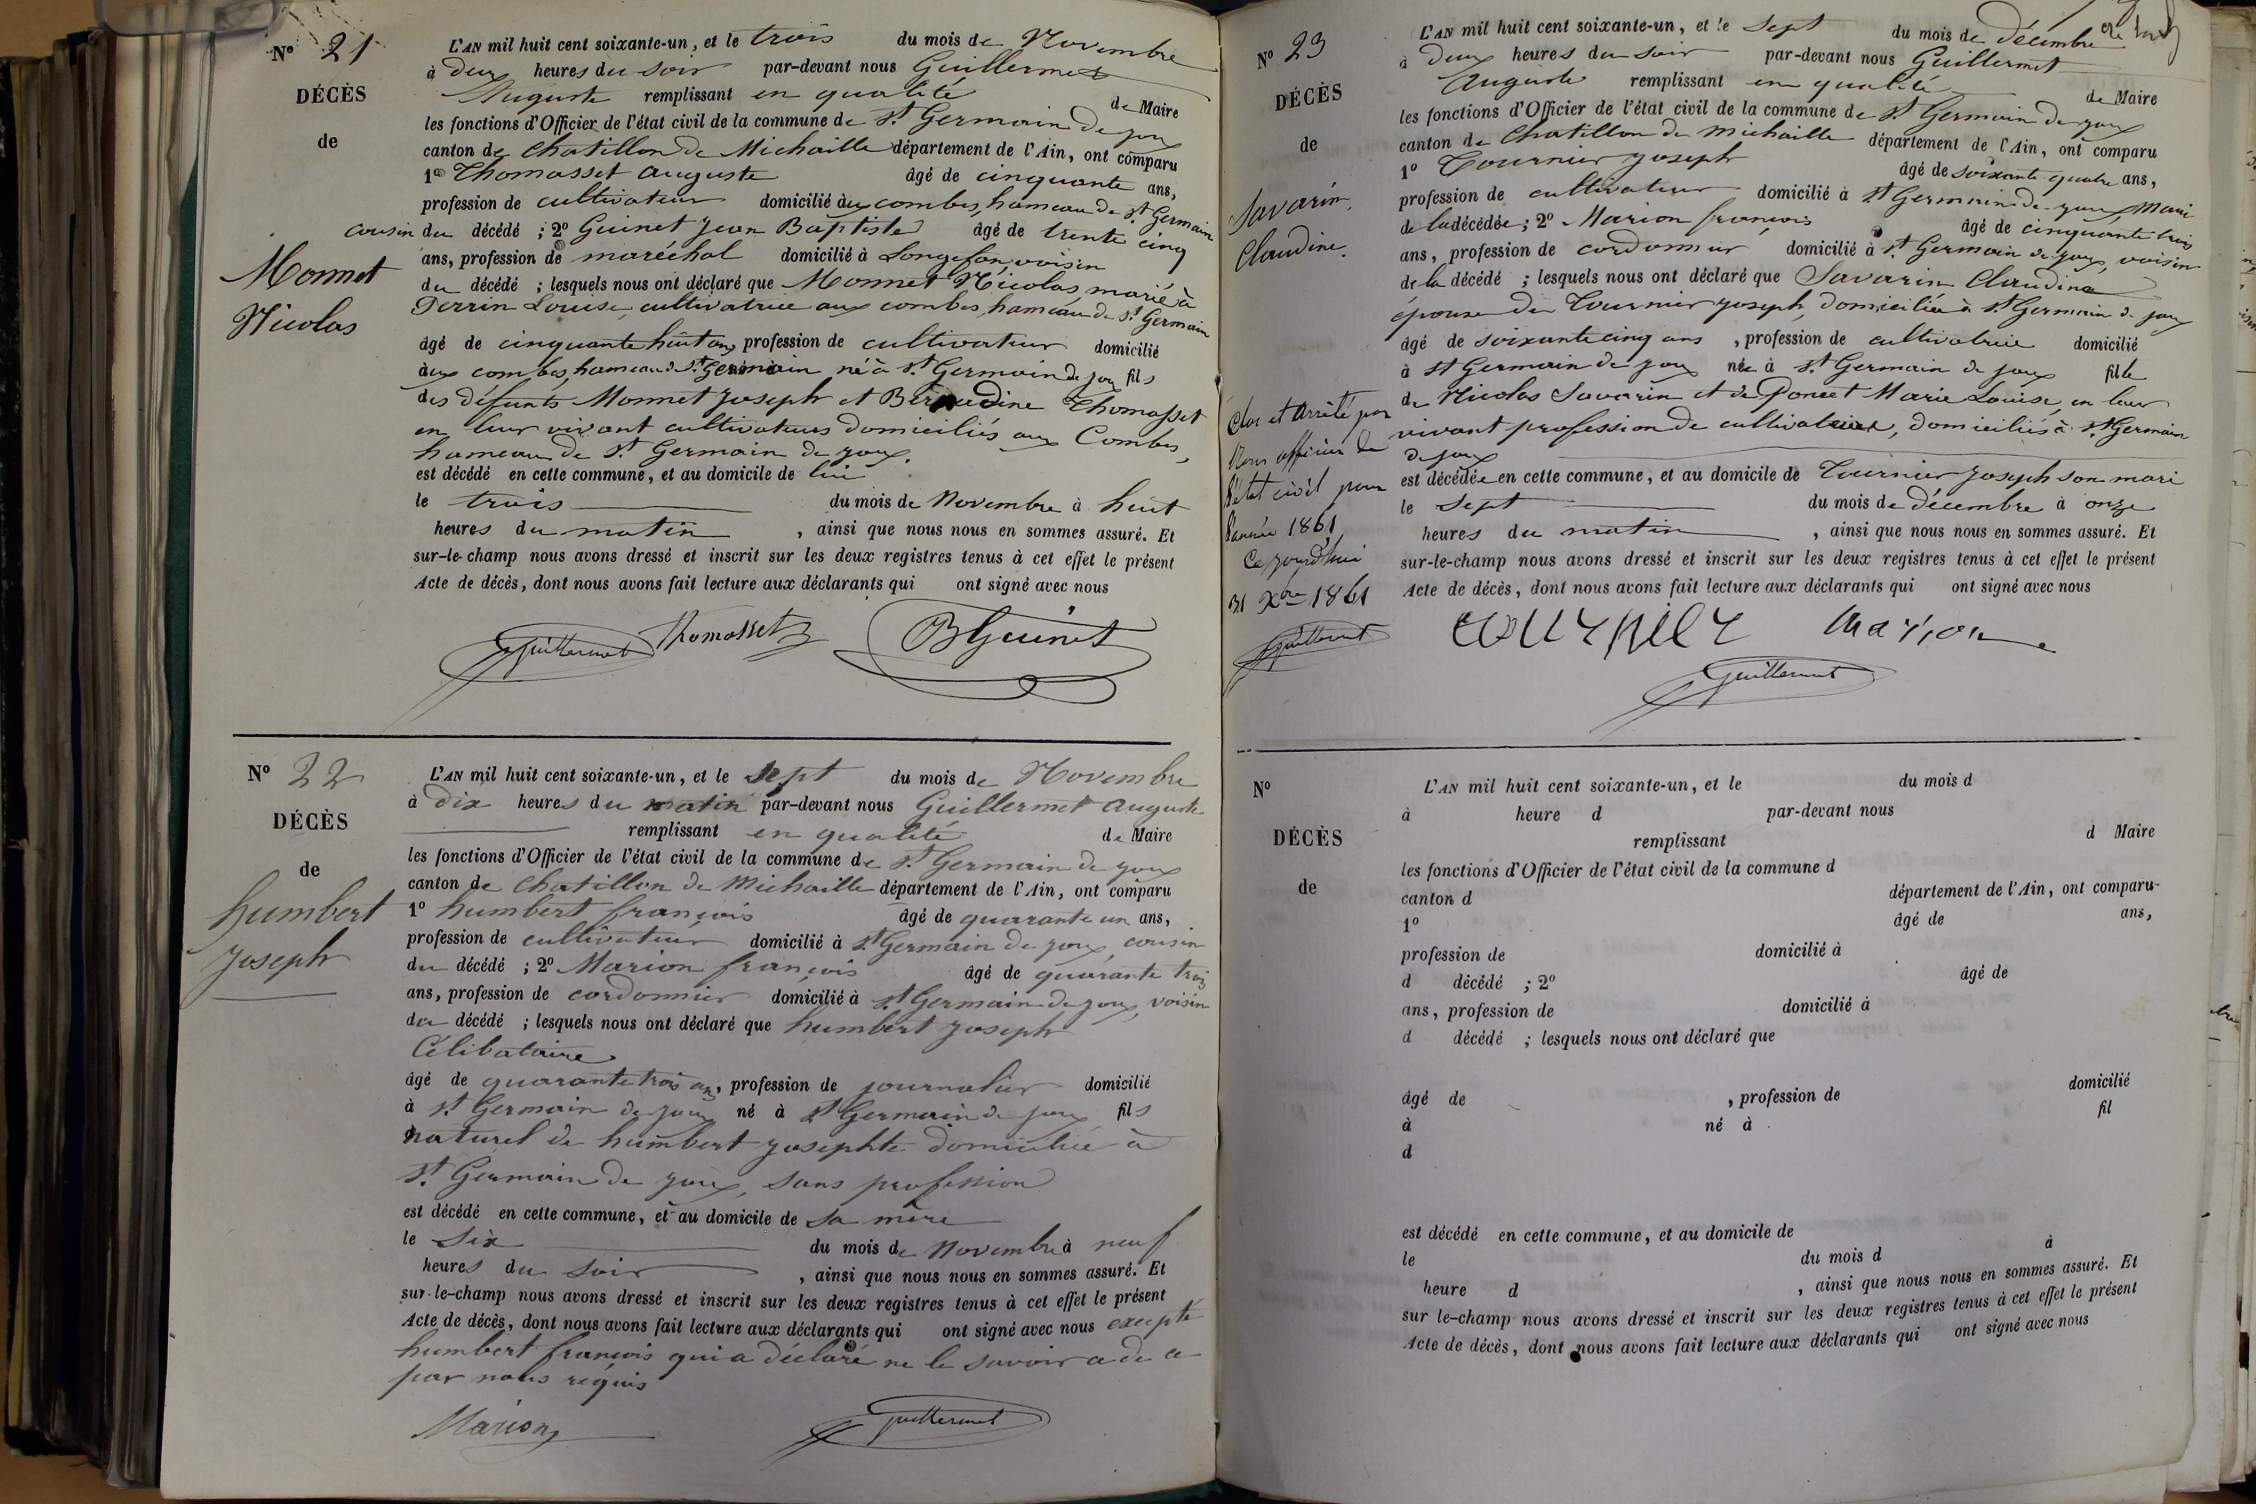 N° 21
DÉCÈS
de
Monnet
Nicolas
L'AN mil huit cent soixante-un, et le trois du mois de Novembre
à deux heures du soir par-devant nous Guillermet
Auguste remplissant en qualité de Maire
les fonctions d'Officier de l'état civil de la commune de St Germain de joux
canton de Chatillon de Michaille département de l'Ain, ont comparu
1° Thomasset auguste âgé de cinquante ans,
profession de cultivateur domicilié aux combes, hameau de St Germain
cousin du décédé ; 2° Guinet Jean Baptiste âgé de trente cinq
ans, profession de maréchal domicilié à Longefon, voisin
du décédé ; lesquels nous ont déclaré que Monnet Nicolas, marié à
Perrin Louise, cultivatrice aux combes, hameau de St Germain
âgé de cinquante huit ans, profession de cultivateur domicilié
aux combes, hameau de St Germain né à St Germain de joux fils
des défunts Monnet Joseph et Bernardine Thomasset
en leur vivant cultivateurs domiciliés aux Combes,
hameau de St Germain de joux.
est décédé en cette commune, et au domicile de lui
le trois du mois de Novembre à huit
heures du matin , ainsi que nous nous en sommes assuré. Et
sur-le-champ nous avons dressé et inscrit sur les deux registres tenus à cet effet le présent
Acte de décès, dont nous avons fait lecture aux déclarants qui ont signé avec nous
Guillermet Thomasset BGuinet
N° 22
DÉCÈS
de
humbert
Joseph
L'AN mil huit cent soixante-un, et le sept du mois de Novembre
à dix heures du matin par-devant nous Guillermet auguste
remplissant en qualité de Maire
les fonctions d'Officier de l'état civil de la commune de St Germain de joux
canton de Chatillon de Michaille département de l'Ain, ont comparu
1° humbert françois âgé de quarante un ans,
profession de cultivateur domicilié à St Germain de joux, cousin
du décédé ; 2° Marion françois âgé de quarante trois
ans, profession de cordonnier domicilié à St Germain de joux, voisin
du décédé ; lesquels nous ont déclaré que humbert Joseph
Célibataire
âgé de quarante trois ans, profession de journalier domicilié
à St Germain de joux né à St Germain de joux fils
naturel de humbert josephte domiciliée à
St Germain de joux, sans profession
est décédé en cette commune, et au domicile de sa mère
le six du mois de Novembre à neuf
heures du soir , ainsi que nous nous en sommes assuré. Et
sur-le-champ nous avons dressé et inscrit sur les deux registres tenus à cet effet le présent
Acte de décès, dont nous avons fait lecture aux déclarants qui ont signé avec nous excepté
humbert françois qui a déclaré ne le savoir de ce
par nous requis
Marion Guillermet
N° 23
DÉCÈS
de
Savarin,
Claudine.
L'AN mil huit cent soixante-un, et le sept du mois de décembre
à deux heures du soir par-devant nous Guillermet
Auguste remplissant en qualité de Maire
les fonctions d'Officier de l'état civil de la commune de St Germain de joux
canton de Chatillon de Michaille département de l'Ain, ont comparu
1° Tournier Joseph âgé de soixante quatre ans,
profession de cultivateur domicilié à St Germain de joux, mari
de la décédée ; 2° Marion françois âgé de cinquante trois
ans, profession de cordonnier domicilié à St Germain de joux, voisin
de la décédé ; lesquels nous ont déclaré que Savarin Claudine
épouse de Tournier Joseph, domiciliée à St Germain de joux
âgé de soixante cinq ans , profession de cultivatrice domicilié
à St Germain de joux née à St Germain de joux fille
de Nicolas Savarin et de Poncet Marie Louise, en leur
vivant profession de cultivateurs, domiciliés à St Germain
de joux
est décédée en cette commune, et au domicile de Tournier Joseph son mari
le sept du mois de décembre à onze
heures du matin , ainsi que nous nous en sommes assuré. Et
sur-le-champ nous avons dressé et inscrit sur les deux registres tenus à cet effet le présent
Acte de décès, dont nous avons fait lecture aux déclarants qui ont signé avec nous
Clos et Arrêté par
Nous officier de
l'état civil pour
l'année 1861
Ce jourd'hui
31 Xbre 1861
Guillermet
tournier Marion
Guillermet
N°
DÉCÈS
de
L'AN mil huit cent soixante-un, et le du mois d
à heure d par-devant nous
remplissant d Maire
les fonctions d'Officier de l'état civil de la commune d
canton d département de l'Ain, ont comparu
1° âgé de ans,
profession de domicilié à
d décédé ; 2° âgé de
ans, profession de domicilié à
d décédé ; lesquels nous ont déclaré que
âgé de , profession de domicilié
à né à fil
d
est décédé en cette commune, et au domicile de
le du mois d à
heure d , ainsi que nous nous en sommes assuré. Et
sur le-champ nous avons dressé et inscrit sur les deux registres tenus à cet effet le présent
Acte de décès, dont nous avons fait lecture aux déclarants qui ont signé avec nous